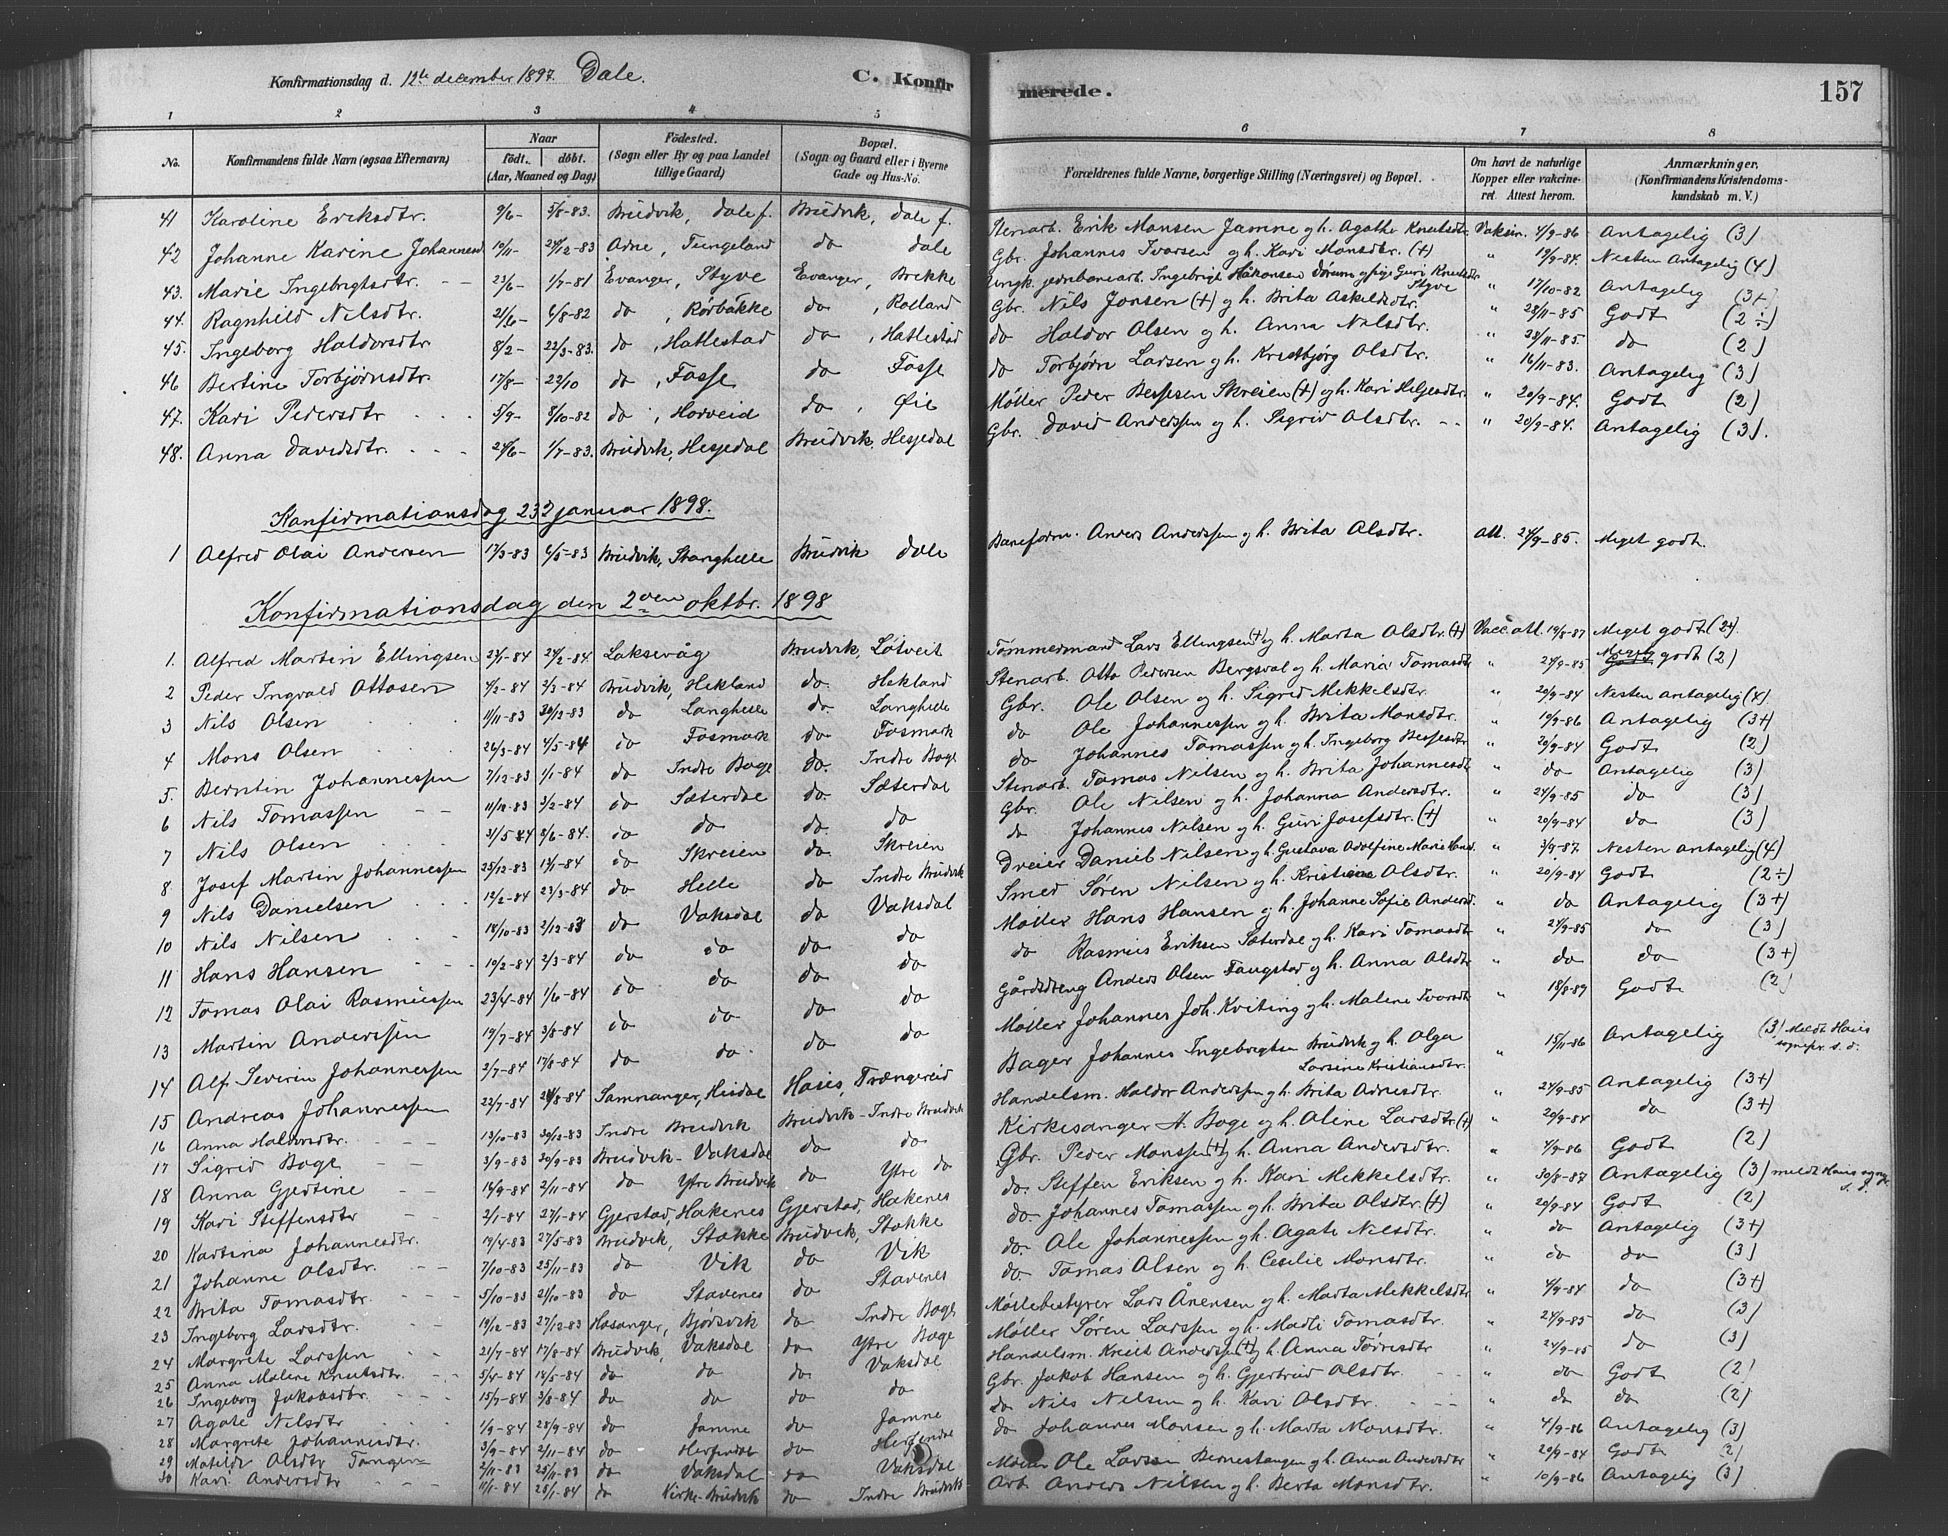 Konfirmationsdag d. 12te december 1897. Dale. C. Konfirmerede. 157
1 2 3 4 5 6 7 8
No. Konfirmandens fulde Navn (ogsaa Efternavn) Naar født. døbt. (Aar, Maaned og Dag) Födested. (Sogn eller By og paa Landet tillige Gaard) Bopæl. (Sogn og Gaard eller i Byerne Gade og Hus-No. Forældrenes fulde Navne, borgerlige Stilling (Næringsvei) og Bopæl. Om havt de naturlige Kopper eller vakcineret. Attest herom. Anmærkninger. (Konfirmandens Kristendomskundskab m. V.)
41 Karoline Eriksdtr. 9/6- 5/8-83. Brudvik, Dale f. Brudvik, Dale f. Stenarb. Erik Monsen Jamne og h. Agathe Knutsdtr. Vaksin. 4/9-86 Antagelig (3)
42 Johanne Karine Johannesd 10/11- 24/12-83 Adne, Tungeland do Dale Gbr. Johannes Ivarsen og h. Kari Monsdtr. (+) " 19/9-84. Nesten Antagelig (4)
43. Marie Ingebrigtsdtr. 23/6- 1/7-81 Evanger, Styve Evanger, Brekke Ungk. jernbanearb. Ingebrigt Håkonsen og pige Guri Knutsdtr. Styve " 17/10-82 Antagelig (3+)
44. Ragnhild Nilsdtr. 21/6- 6/8-82 do, Rørbakke do, Rolland Gbr. Nils Jonsen (+) og h. Brita Askeldsdtr. " 28/11-85 Godt (2÷)
45. Ingeborg Haldorsdtr 8/2- 22/3-83. do, Hatlestad do, Hatlestad do Haldor Olsen og h. Anna Nilsdtr. " 28/11-85. do (2)
46 Bertine Torbjørnsdtr. 17/8- 22/10 do, Fosse do Fosse do Torbjørn Larsen og h. Kristbjørg Olsdtr. " 16/11-83. Antagelig (3)
47. Kari Pedersdtr 5/9- 8/10-82 do, Horveid do, Øie Møller Peder Bessesen Skreien (+) og h. Kari Helgesdtr. " 20/9-84. Godt (2)
48. Anna Davidsdtr. 24/6- 1/7-83. Brudvik, Hesjedal Brudvik Hesjedal Gbr. David Anderssen og h. Sigrid Olsdtr. " 20/9-84. Antagelig (3).
Konfirmationsdag 23d januar 1898.
1 Alfred Olai Andersen 17/3-83 6/5-83 Brudvik, Stanghelle Brudvik Dale Baneform. Anders Anderssen og h. Brita Olsdtr. Att. 24/9-85. Meget godt.
Konfirmationsdag den 2den oktbr. 1898
1. Alfred Martin Ellingsen 23/1-84 24/2-84 Laksevåg Brudvik, Løtveit Tømmermand Lars Ellingsen (+) og h. Marta Olsdtr. (+) Vacc. att. 19/8-87 Meget godt (2+).
2 Peder Ingvald Ottosen 4/2-84 2/3-84 Brudvik, Hekland do. Hekland Stenarb. Otto Pedersen Bergsval og h. Maria Tomasdtr " 24/9-85 Meget godt (2)
3 Nils Olsen 11/11-83 30/12-83 do Langhelle do. Langhelle Gbr. Ole Olsen og h. Sigrid Mekkelsdtr. " 20/9-84 Nesten antagelig (4)
4 Mons Olsen 26/3-84 4/5-84 do Fosmark do Fosmark do Ole Johannessen og h. Brita Monsdtr. " 19/9-86 Antagelig (3+)
5. Berntin Johannessen 7/12-83 1/1-84 do Indre Boge do. Indre Boge do Johannes Tomassen og h. Ingeborg Bessesdtr " 20/9-84 Godt (2)
6 Nils Tomassen 11/12-83 3/2-84 do Sæterdal do. Sæterdal Stenarb. Tomas Nilsen og h. Brita Johannesdtr " do Antagelig (3)
7 Nils Olsen 31/5-84 8/6-84. do do do. do Gbr. Ole Nilsen og h. Johanna Andersdtr. " 24/9-85 do (3)
8 Josef Martin Johannessen 25/12-83 13/1-84 do Skreien do. Skreien do Johannes Nilsen og h. Guri Josefsdtr. (+) " 20/9-84 do (3)
9 Nils Danielsen 12/2-84 23/3-84 do Helle do Indre Brudvik Dreier Daniel Nilsen og h. Gustava Adolfine Marie " 3/9-87. Nesten antagelig (4)
10 Nils Nilsen 14/10-83 2/12-83 do Vaksdal do Vaksdal Smed Søren Nilsen og h. Kristiane Olsdtr. " 20/9-84 Godt (2÷)
11 Hans Hansen 10/2-84 2/3-84 do do do do Møller Hans Hansen og h. Johanne Sofie Andersd. " do Antagelig (3+)
12 Tomas Olai Rasmussen 23/4-84 1/6-84 do do do do do Rasmus Eriksen Sæterdal og h. Kari Tomasdtr " 24/9-85 do (3)
13 Martin Anderssen 19/7-84 3/8-84 do do do do Gårdsdreng Anders Olsen Faugstad og h. Anna Olsdtr " do do (3+)
14 Alf Severin Johannessen 2/7-84 17/8-84 do do. do do Møller Johannes Joh. Kviting og h. Malene Ivarsdtr " 18/8-89 Godt (2)
15 Andreas Johannessen 22/7-84 24/8-84 Samnanger, Hisdal Haus, Trængereid Bager Johannes Ingebrigtsen Brudvik og h. Olga Larsine Kristiansdtr. " 15/11-86 Antagelig (3) Meldt Haus sognepr. s. d.
16 Anna Haldorsdtr. 13/10-83 30/12-83 Indre Brudvik Brudvik - Indre Brudvik Handelsm. Haldor Anderssen og h. Brita Adnesdtr. " 24/9-85 Antagelig (3+)
17 Sigrid Boge 3/9-83 30/9-83 Brudvik - Vaksdal do do Kirkesanger A. Boge og h. Oline Larsdtr. (+) " 20/9-84 do (3+)
18 Anna Gjertine 14/9-84 2/11-84 do Ytre Brudvik do Ytre do Gbr. Peder Monssen (+) og h. Anna Andersdtr. " 4/9-86 Godt (2)
19 Kari Steffensdtr 2/1-84 27/1-84 Gjerstad, Hakenes Gjerstad, Hakenes do. Steffen Eriksen og h. Kari Mekkelsdtr. " 30/8-87 Antagelig (3) meldt Haus sognepr. s. d.
20 Kartina Johannesdtr. 19/4-83 27/5-83 Brudvik, Stokke Brudvik, Stokke do. Johannes Tomassen og h. Brita Olsdtr. (+) " 20/9-84 Godt (2)
21 Johanne Olsdtr. 7/10-83 25/11-83 do Vik do Vik do. Ole Johannessen og h. Agate Nilsdtr. " do Antagelig (3+)
22 Brita Tomasdtr 5/10-83 21/10-83 do Stavenes do Stavenes do. Tomas Olsen og h. Cecilie Monsdtr. " do do (3)
23 Ingeborg Larsdtr. 19/12-83 27/12-83 Hosanger, Bjørsvik do Indre Boge Møllebestyrer Lars Ånensen og h. Marta Mekkelsdtr " 4/9-84 do (3+)
24 Margrete Larssen 21/7-84 17/8-84 Brudvik, Vaksdal do Ytre Boge Møller Søren Larssen og h. Marti Tomasdtr. " 24/9-85 do (3)
25 Anna Malene Knutsdtr. 5/4-84 18/5-84 do do do. Vaksdal Handelsm. Knut Anderssen (+) og h. Anna Tørresdtr " 24/9-85 do (3)
26 Ingeborg Jakobsdtr. 15/7-84 3/8-84 do do do do Gbr. Jakob Hansen og h. Gjertrud Olsdtr. " do Godt (2)
27 Agate Nilsdtr 1/9-84 28/9-84 do Jamne do Jamne do Nils Nilsen og h. Kari Olsdtr. " do do (2)
28 Margrete Johannesdtr. 3/9-84 2/11-84 do Herfindal do Herfindal do Johannes Monsen og h. Marta Monsdtr. " 4/9-86 Antagelig (3)
29 Matilde Olsdtr Tangen 2/11-83 25/11-83 do Vaksdal do Vaksdal Møller Ole Larssen Bernestangen og h. Anna Andersdtr " 20/9-84 Godt (2)
30 Kari Andersdtr 11/1-84 25/1-84 do Kirke-Brudvik do Indre Brudvik Arb. Anders Nilsen og h. Berta Monsdtr. " 10/9-86 Antagelig (3)